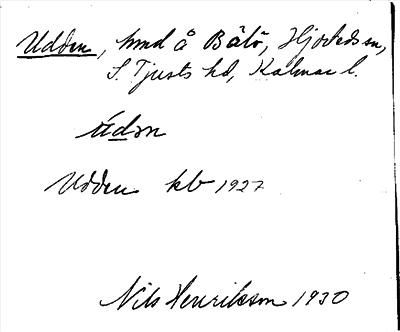 Udden, lmd å Bälö, Hjorteds sn,
S. Tjusts hd, Kalmar l.
údən
Udden kb 1927
Nils Henrikson 1930